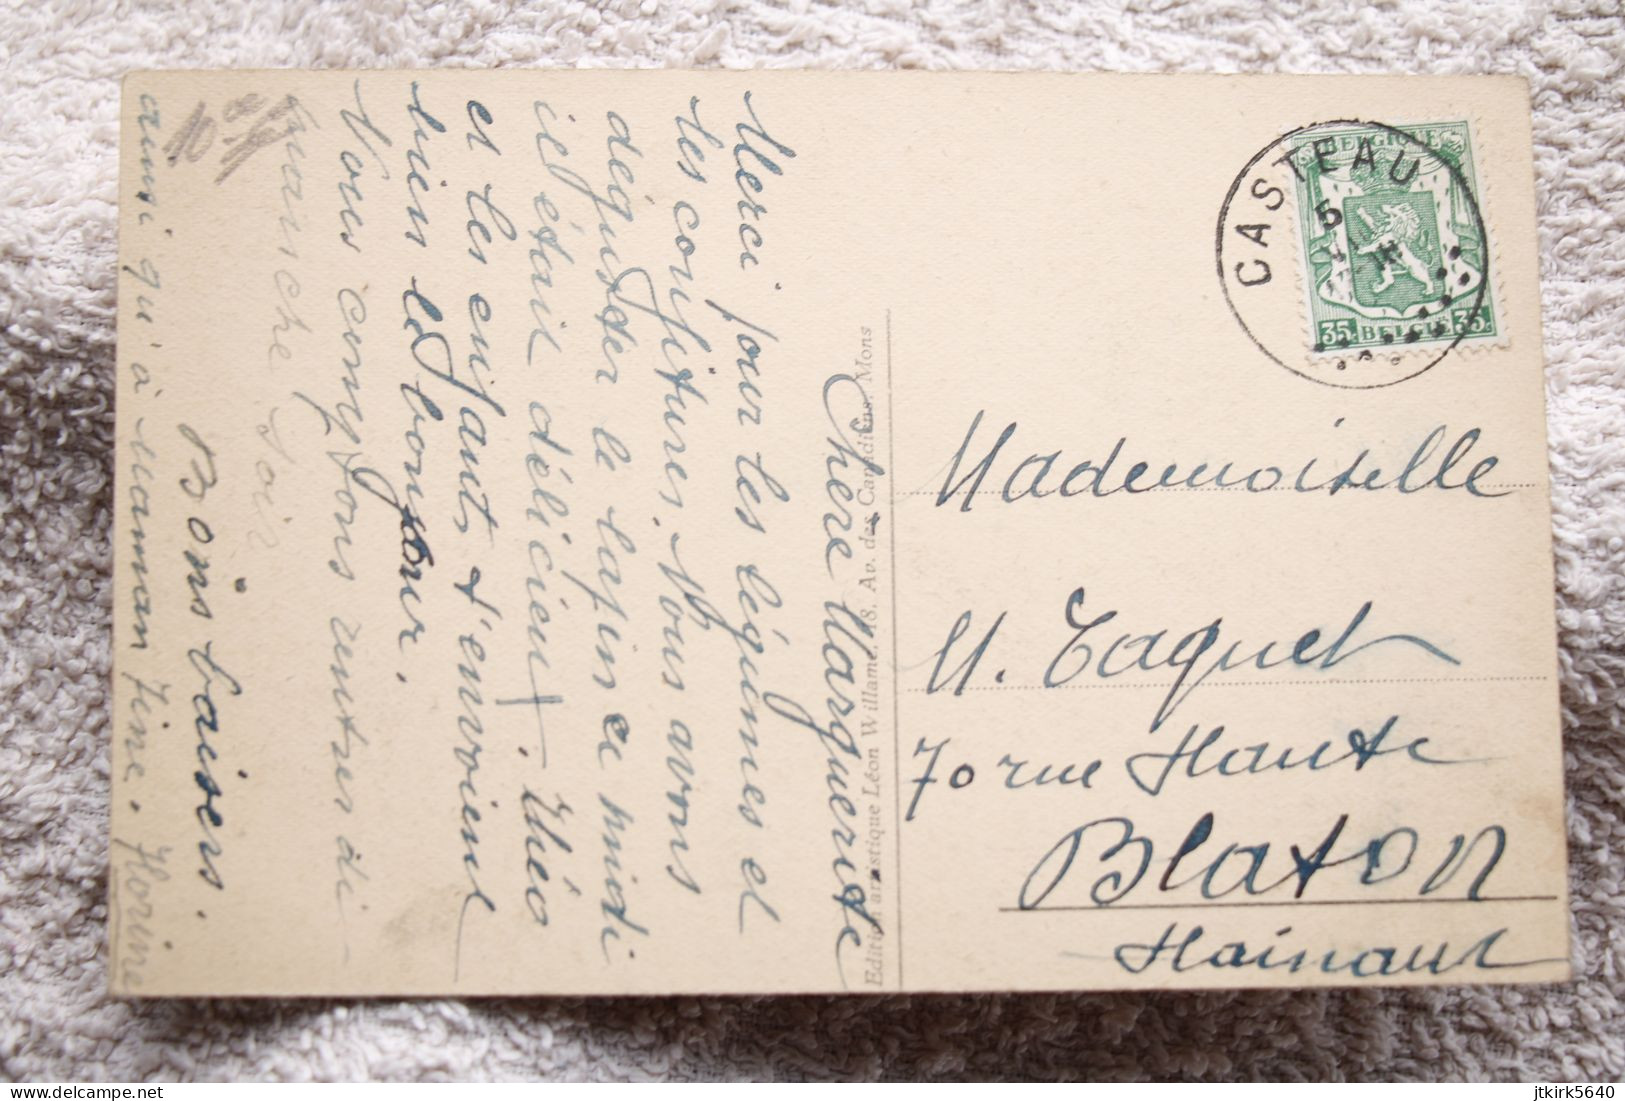 Chère Marguerite
Merci pour les légumes et
les confitures. Nous avons
déguster le lapin ce midi
il était délicieux. Théo
et les enfants t'envoient
bien le bonjour.
Nous comptons rentrer di-
manche soir
Bons baisers.
ainsi qu'à Maman Fine. Florine
Edition artistique Léon Willame, 18, Av. des Canadiens, Mons
CASTEAU
5
BELGIQUE
35c BELGIË 35c
Mademoiselle
M. Taquet
70 rue Haute
Blaton
Hainaut
delcampe.net
jtkirk5640